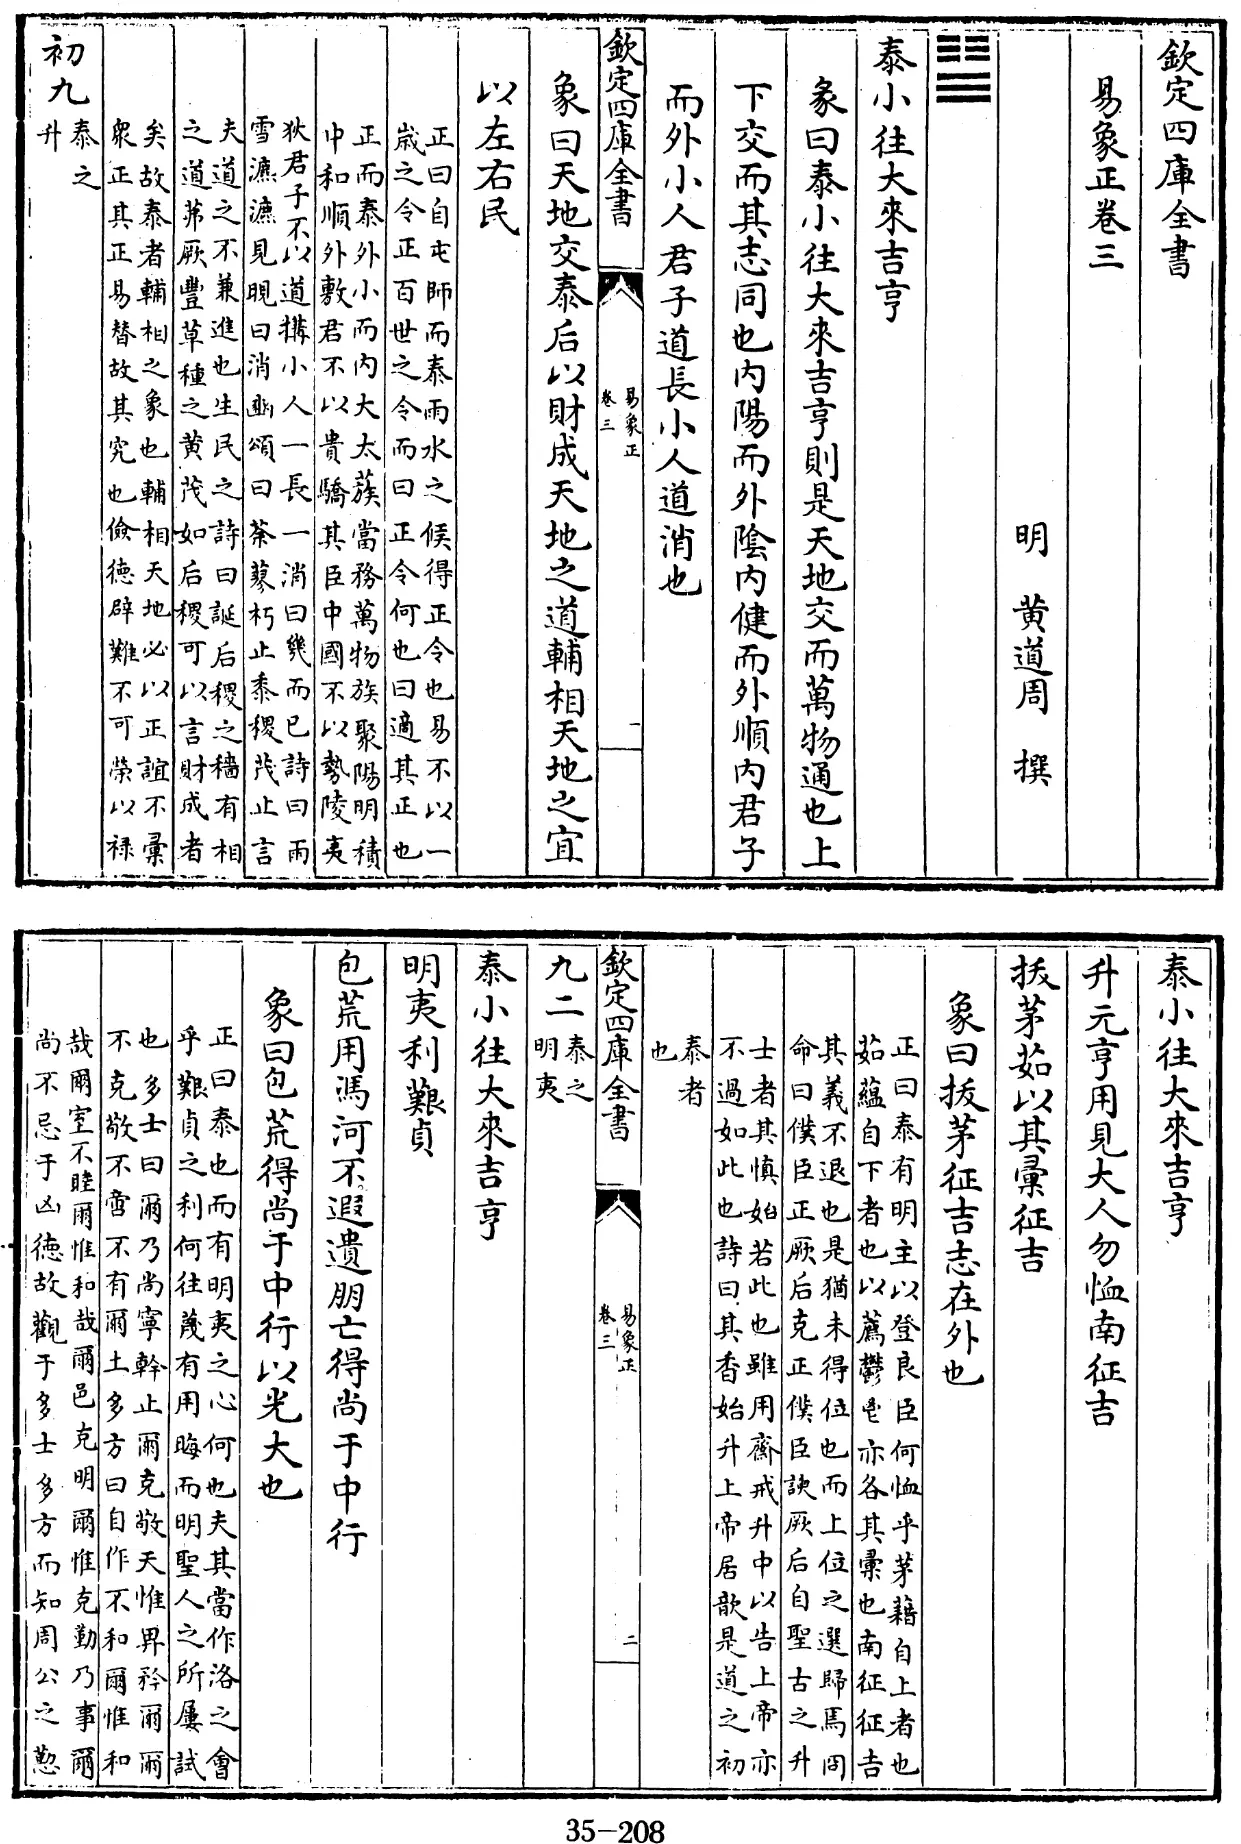 欽定四庫全書
易象正卷三
明 黄道周 撰
䷊
泰小往大來吉亨
彖曰泰小往大來吉亨則是天地交而萬物通也上
下交而其志同也内陽而外陰内健而外順内君子
而外小人君子道長小人道消也
欽定四庫全書 易象正 卷三 一
象曰天地交泰后以財成天地之道輔相天地之宜
以左右民
正曰自屯師而泰雨水之候得正令也易不以一
歲之令正百世之令而曰正令何也曰適其正也
正而泰外小而内大太蔟當務萬物族聚陽明積
中和順外敷君不以貴驕其臣中國不以勢陵夷
狄君子不以道搆小人一長一消曰幾而已詩曰雨
雪瀌瀌見晛曰消豳頌曰荼蓼朽止黍稷茂止言
夫道之不兼進也生民之詩曰誕后稷之穡有相
之道茀厥豐草種之黄茂如后稷可以言財成者
矣故泰者輔相之象也輔相天地必以正誼不彙
衆正其正易替故其究也儉德辟難不可榮以禄
初九 泰之升
泰小往大來吉亨
升元亨用見大人勿恤南征吉
拔茅茹以其彙征吉
象曰拔茅征吉志在外也
正曰泰有明主以登良臣何恤乎茅藉自上者也
茹藴自下者也以薦鬱鬯亦各其彙也南征征吉
其義不退也是猶未得位也而上位之選歸焉冏
命曰僕臣正厥后克正僕臣諛厥后自聖古之升
士者其慎始若此也雖用齋戒升中以告上帝亦
不過如此也詩曰其香始升上帝居歆是道之初
泰者
也
欽定四庫全書 易象正 卷三 二
九二 泰之明夷
泰小往大來吉亨
明夷利艱貞
包荒用馮河不遐遺朋亡得尚于中行
象曰包荒得尚于中行以光大也
正曰泰也而有明夷之心何也夫其當作洛之會
乎艱貞之利何往蔑有用晦而明聖人之所屢試
也多士曰爾乃尚寧幹止爾克敬天惟畀矜爾爾
不克敬不啻不有爾土多方曰自作不和爾惟和
哉爾室不睦爾惟和哉爾邑克明爾惟克勤乃事爾
尚不忌于凶德故觀于多士多方而知周公之懃
35-208